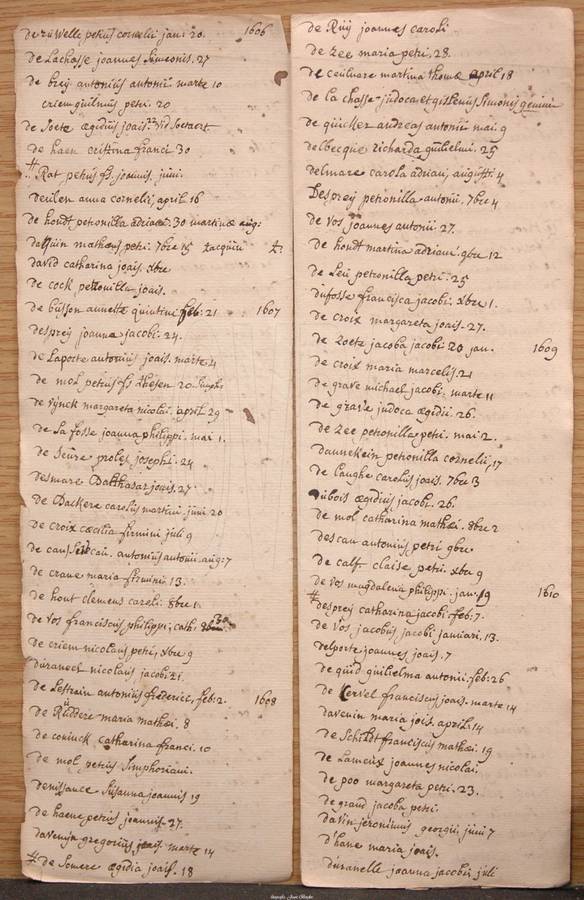 de zuWelle petrus cornelii jan: 20. 1606
de Lachasse joannes Simeonis. 27
de breÿ antonius antonii marte 10
criem guilmus petri. 20
de Soete ægidius joais.
de haen cristina franci 30
Rat petrus fs. joannis. juni.
deuilen anna cornelii, april 16
de hondt petronilla adriani. 30 martinæ aug:
petri. 7bre 15
david catharina joais. xbre
de cock petronilla joais.
de büsson annette quintini feb: 21 1607
despreÿ joanna jacobi. 24.
de Laporte antonius joais. marte 4
de mol petrus fs 20
de vÿnck margareta nicolai. april 29
de La fosse joanna philippi. mai 1.
de Seure proles josephi. 24
desmare Balthasar joais. 27
de Backere carolus martini juni 20
de croix cæcilia firmini juli 9
antonius antonii. aug: 7
de crane maria firmini 13.
de hout clemens caroli. 8bre 1
de vos franciscus philippi, cath.
de criem nicolaus petri, xbre 9
duranoel nicolaus jacobi.
de antonius frederici, feb: 2. 1608
de Rüddere maria mathæi. 8
de coninck catharina franci. 10
de mol petrus Simphoriani.
Susanna joannis 19
de haene petrus joannis. 27.
davenijn gregorius joais. marte 14
de Somere ægidia joais. 18
de Rüÿ joannes caroli
de zee maria petri, 28.
de ceulnare martina thomæ april 18
de la chasse judoca et gislenus Simonis gemini
de quicker andreas antonii mai. 9
delbecque richarda gulielmi. 25
delmare carola adriani, augusti. 4
Despreÿ petronilla antonii. 7bre 4
de vos joannes antonii 27.
de hondt martina adriani. 9bre 12
de Leü petronilla petri. 25
dufosse francisca jacobi. xbre 1.
de croix margareta joais. 27.
de zoete jacoba jacobi 20 jan. 1609
de croix maria marcelis. 21
de grave michael jacobi. marte 11
de grave judoca ægidii. 26.
de zee petronilla petri. mai 2.
dannekein petronilla cornelii, 17
de langhe carolus joais. 7bre 3
dubois ægidius jacobi. 26.
de mol catharina mathæi. 8bre 2
descau antonius petri 9bre
de calf claise petri. xbre 9
de vos magdalena philippi. jan. 19 1610
despreÿ catharina jacobi. feb: 7.
de vos jacobus jacobi januari. 13.
delporte joannes joais. 7
de quid guilielma antonii. feb: 26
de Kervel franciscus joais. marte 14
davenin maria jois. april. 14
de Schildt franciscus mathæi. 19
de Lameux joannes nicolai.
de poo margareta petri. 23.
de graud jacoba petri.
davin jeronimus georgii juni 7
d'hane maria joais.
duranelle joanna jacobis juli